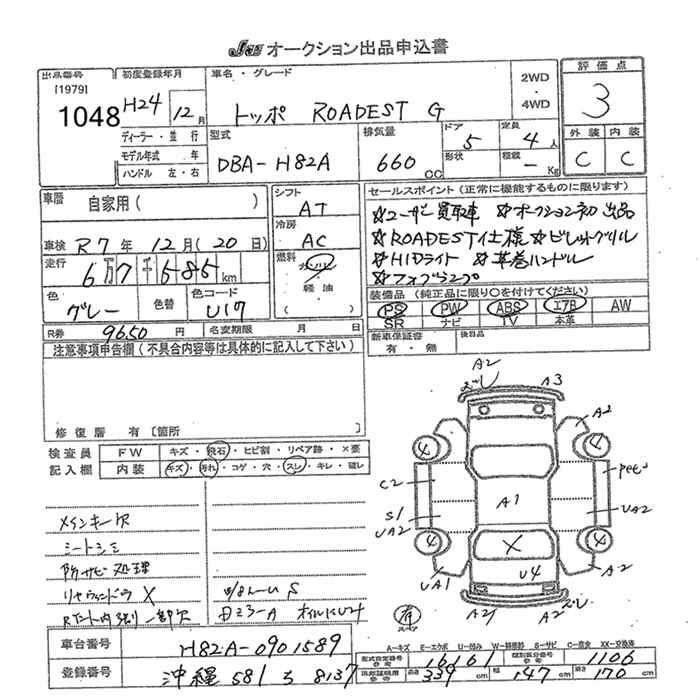 JAS オークション出品申込書
出品番号 [1979] 1048
初度登録年月 H24 12月
車名・グレード トッポ ROADEST G
2WD・4WD
評価点 3
外装 C 内装 C
ディーラー・並行
モデル年式 年
ハンドル 左・右
型式 DBA-H82A
排気量 660 CC
ドア 5 形状
定員 4人
積載 - Kg
車歴 自家用( )
シフト AT
冷房 AC
燃料 ガソリン 軽油 ( )
車検 R7年12月(20日)
走行 6万7千585km
色 グレー 色替 色コード U17
R券 9650円
名変期限 月 日
セールスポイント(正常に機能するものに限ります)
☆ユーザー買取車 ☆オークション初出品
☆ROADEST仕様 ☆ビレットグリル
☆HIDライト ☆革巻ハンドル
☆フォグランプ
装備品(純正品に限り○を付けてください)
PS PW ABS エアB AW
SR ナビ TV 本革
新車保証書 有・無 後日品
注意事項申告欄(不具合内容等は具体的に記入して下さい)
修復歴 有〔箇所
検査員記入欄
FW キズ・飛石・ヒビ割・リペア跡・×要
内装 キズ・汚れ・コゲ・穴・スレ・キレ・破レ
メインキー欠
シートシミ
防サビ処理
リヤウィンドウ X
Rゲート内張り一部欠
A2
A3
A2
C2
S1
UA2
A1
UA2
4 4 4 4
X
U4
UA1
A2
A2
有 スペア
A=キズ E=エクボ U=凹み W=補修跡 S=サビ C=腐食 XX=交換済
車台番号 H82A-0901589
登録番号 沖縄 581 う 8137
型式指定番号 参考 16161
類別区分番号 参考 1106
長さ 339cm 幅 147cm 高さ 170cm